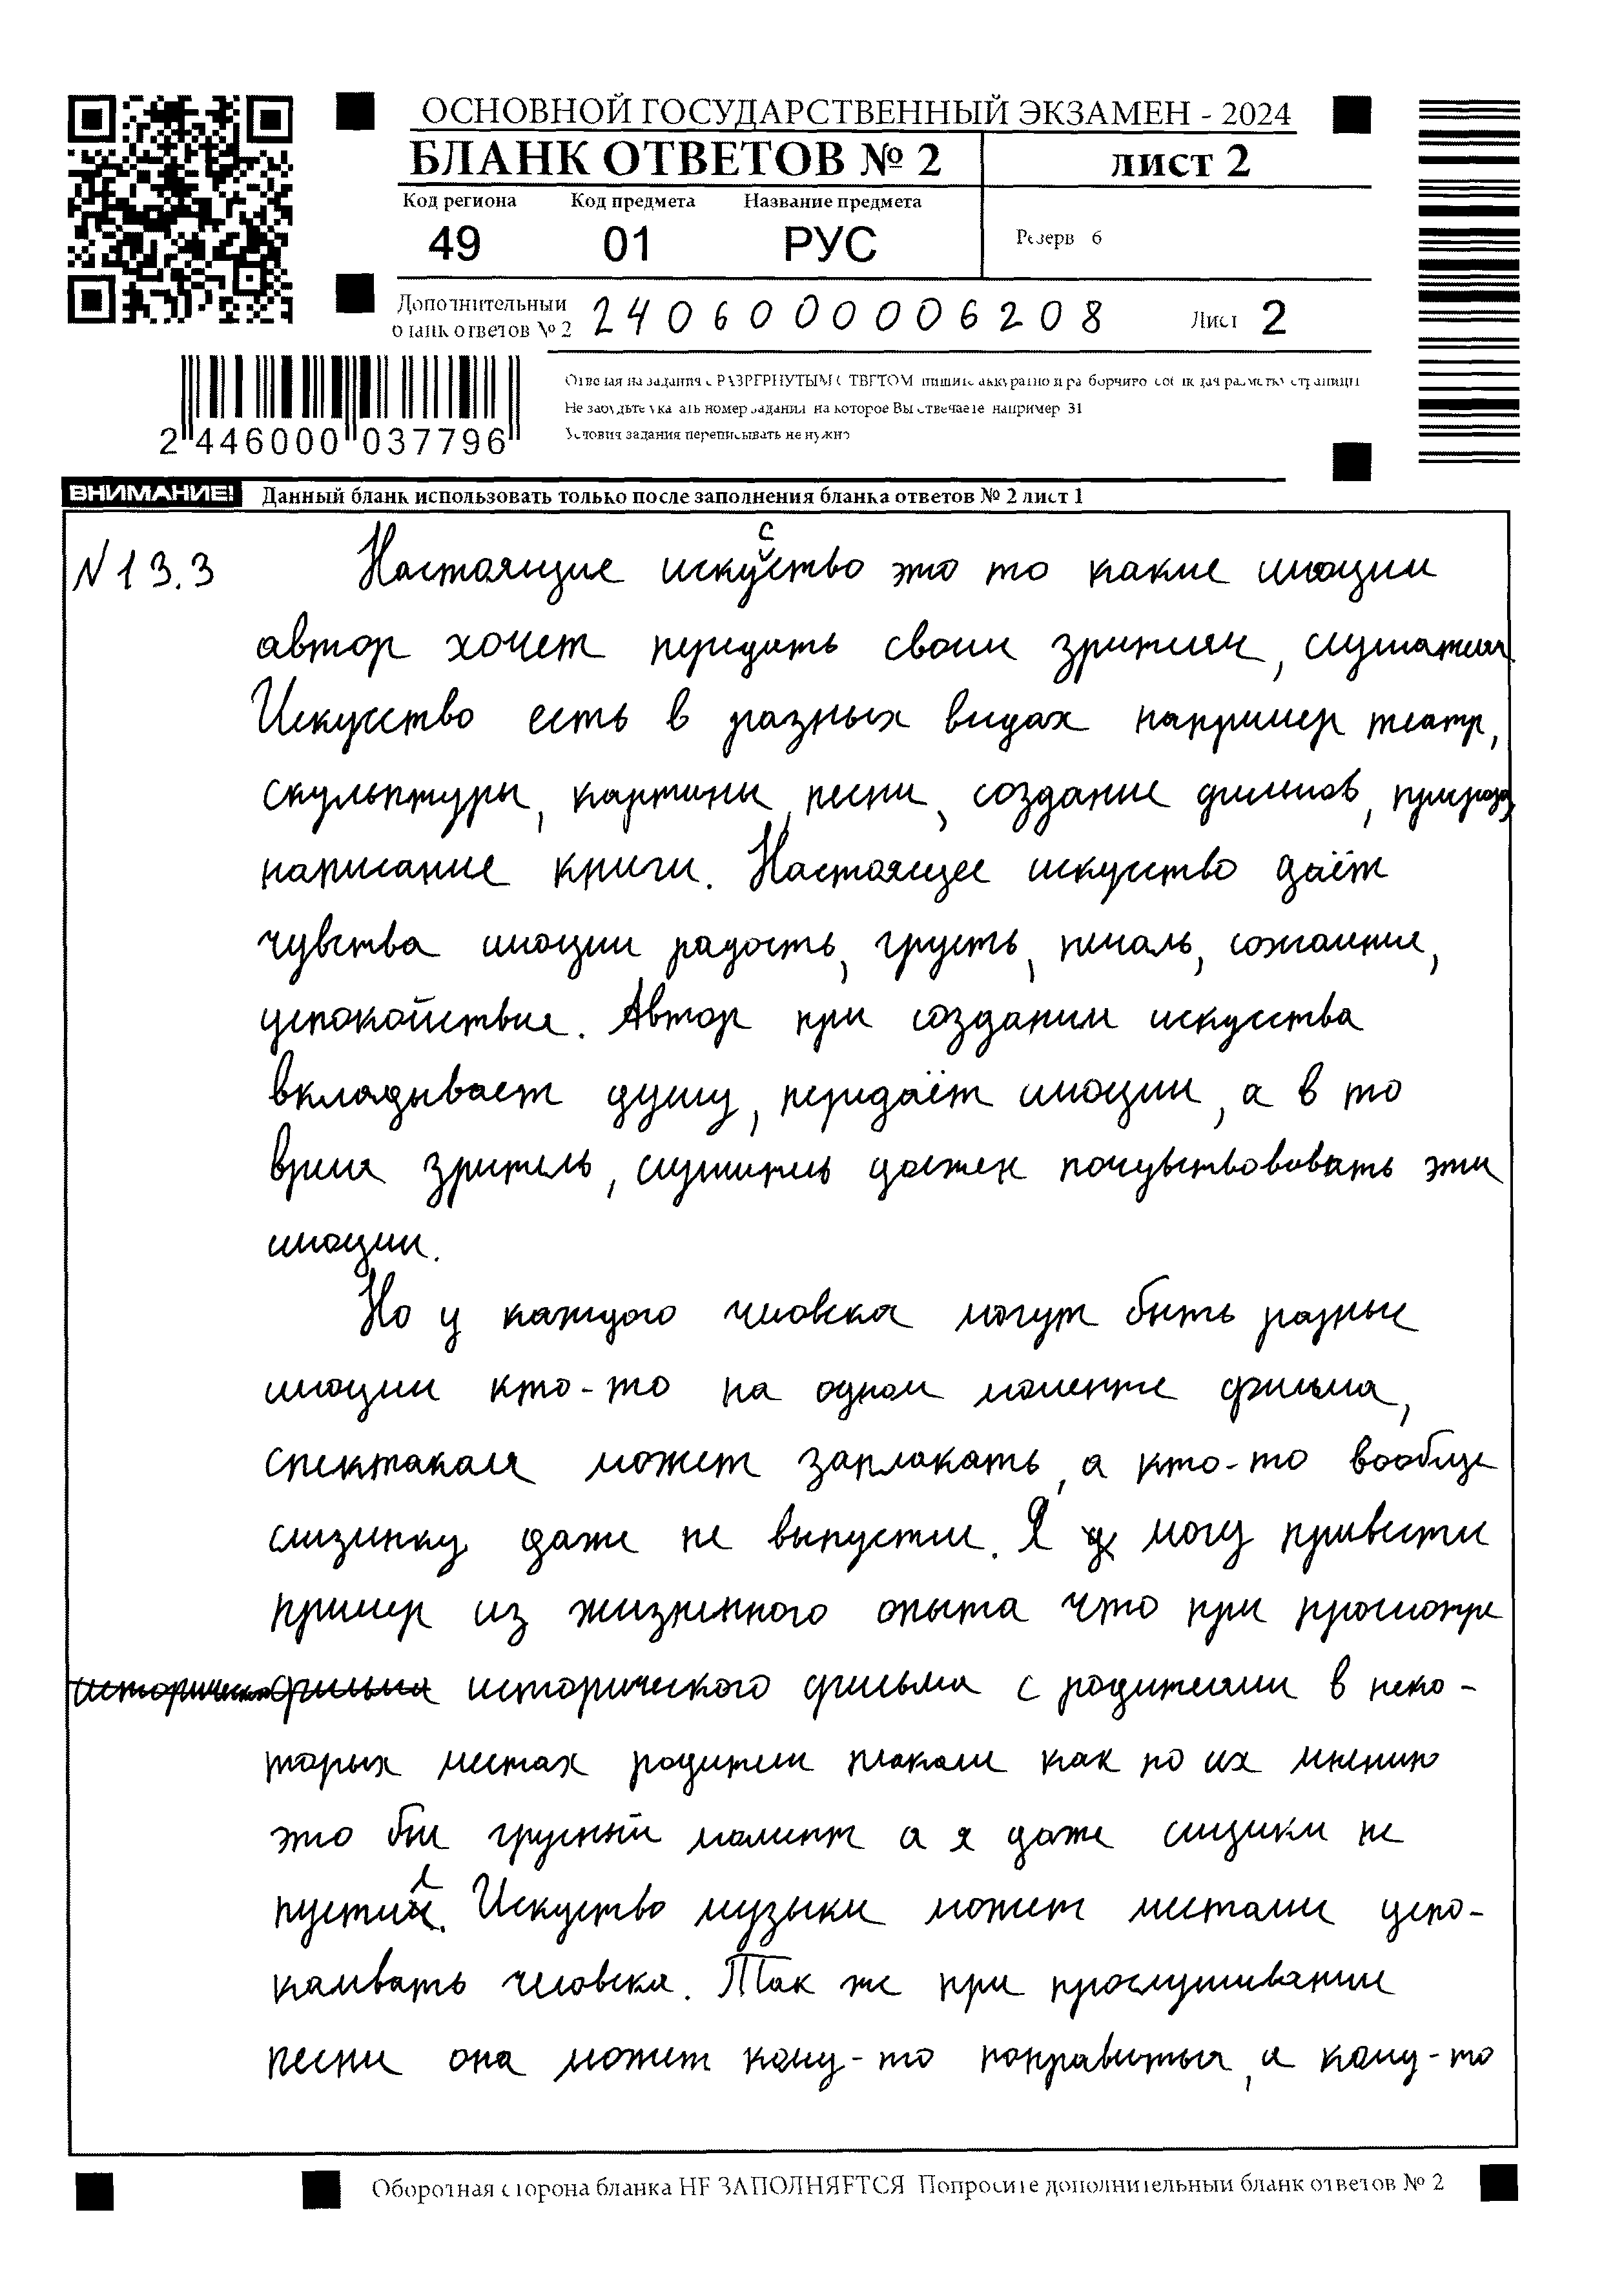 ОСНОВНОЙ ГОСУДАРСТВЕННЫЙ ЭКЗАМЕН - 2024
БЛАНК ОТВЕТОВ № 2
ЛИСТ 2
Код региона Код предмета Название предмета
49 01 РУС
Резерв 6
Дополнительный бланк ответов № 2 2406000006208 Лист 2
Отвечая на задания с РАЗВЕРНУТЫМ ОТВЕТОМ пишите аккуратно и разборчиво соблюдая разметку страницы
Не забудьте указать номер задания на которое Вы отвечаете например 31
Условия задания переписывать не нужно
2 446000 037796
ВНИМАНИЕ! Данный бланк использовать только после заполнения бланка ответов № 2 лист 1
N 13.3 Настоящие искусство это то какие имоции
автор хочет передать своим зрителям, слушателям.
Искусство есть в разных видах например театр,
скульптуры, картины, песни, создание фильмов, природа,
написание книги. Настоящее искусство даёт
чувства имоции радость, грусть, печаль, сожаление,
успокойствие. Автор при создании искусства
вкладывает душу, передаёт имоции, а в то
время зритель, слушатель должен почувствововать эти
имоции.
Но у каждого человека могут быть разные
имоции кто-то на одном моменте фильма,
спектакаля может заплакать, а кто-то вообще
слизинку даже не выпустит. Я могу привести
пример из жизненного опыта что при просмотре
исторического фильма с родителями в неко-
торых местах родители плакали как по их мнению
это был грусный момент а я даже слизики не
пустил. Искусство музыки может местами успо-
каивать человека. Так же при прослушивание
песни она может кому-то понравиться, а кому-то
Оборотная сторона бланка НЕ ЗАПОЛНЯЕТСЯ Попросите дополнительный бланк ответов № 2